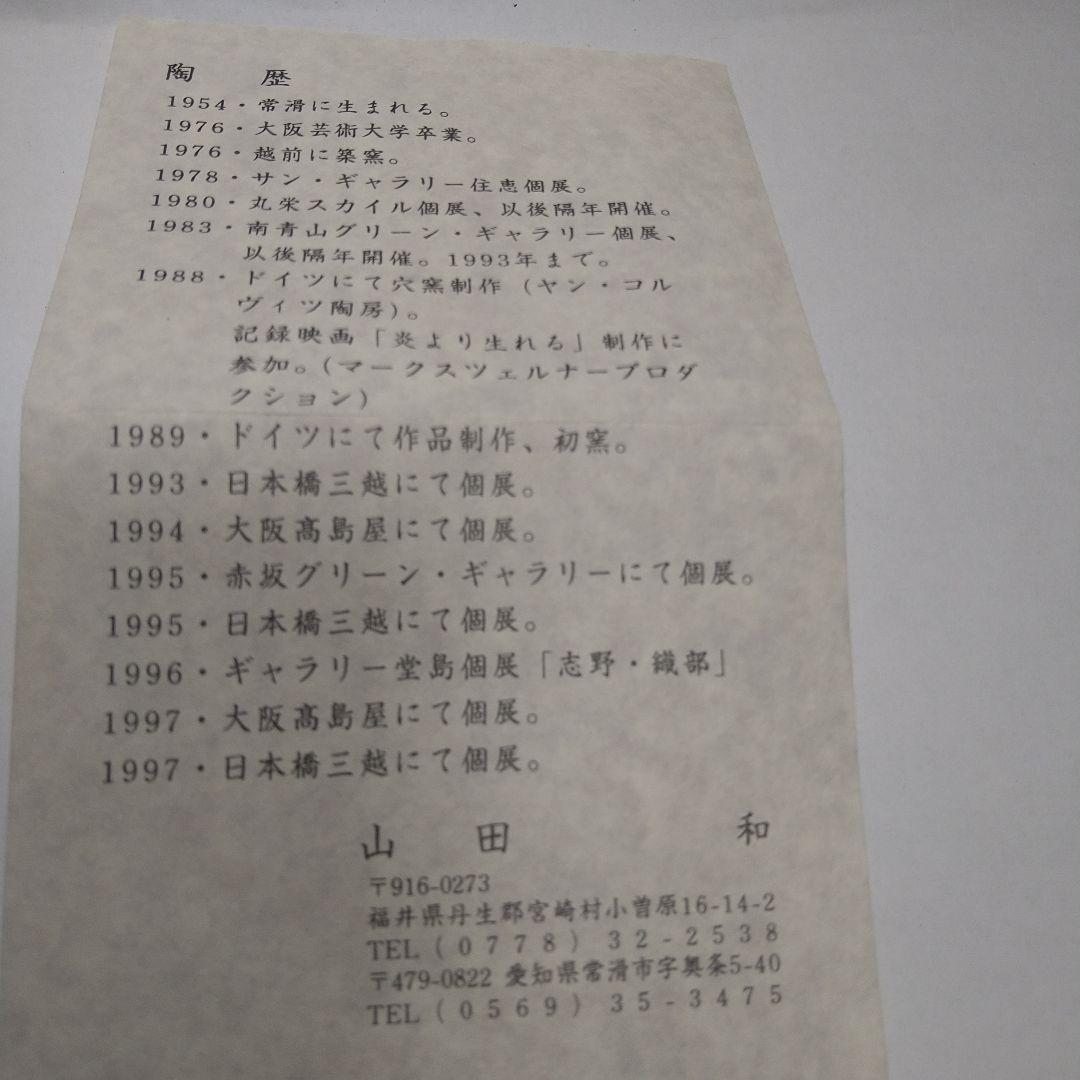 陶　歴
1954・常滑に生まれる。
1976・大阪芸術大学卒業。
1976・越前に築窯。
1978・サン・ギャラリー住恵個展。
1980・丸栄スカイル個展、以後隔年開催。
1983・南青山グリーン・ギャラリー個展、
以後隔年開催。1993年まで。
1988・ドイツにて穴窯制作（ヤン・コル
ヴィツ陶房）。
記録映画「炎より生れる」制作に
参加。（マークスツェルナープロダ
クション）
1989・ドイツにて作品制作、初窯。
1993・日本橋三越にて個展。
1994・大阪髙島屋にて個展。
1995・赤坂グリーン・ギャラリーにて個展。
1995・日本橋三越にて個展。
1996・ギャラリー堂島個展「志野・織部」
1997・大阪髙島屋にて個展。
1997・日本橋三越にて個展。
山　田　和
〒916-0273
福井県丹生郡宮崎村小曽原16-14-2
TEL（0778）32-2538
〒479-0822 愛知県常滑市字奥条5-40
TEL（0569）35-3475